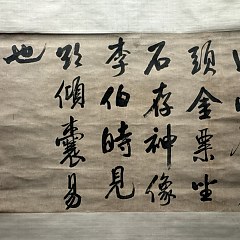 頭金粟坐
石存神像
李伯時見
欲傾囊易
也